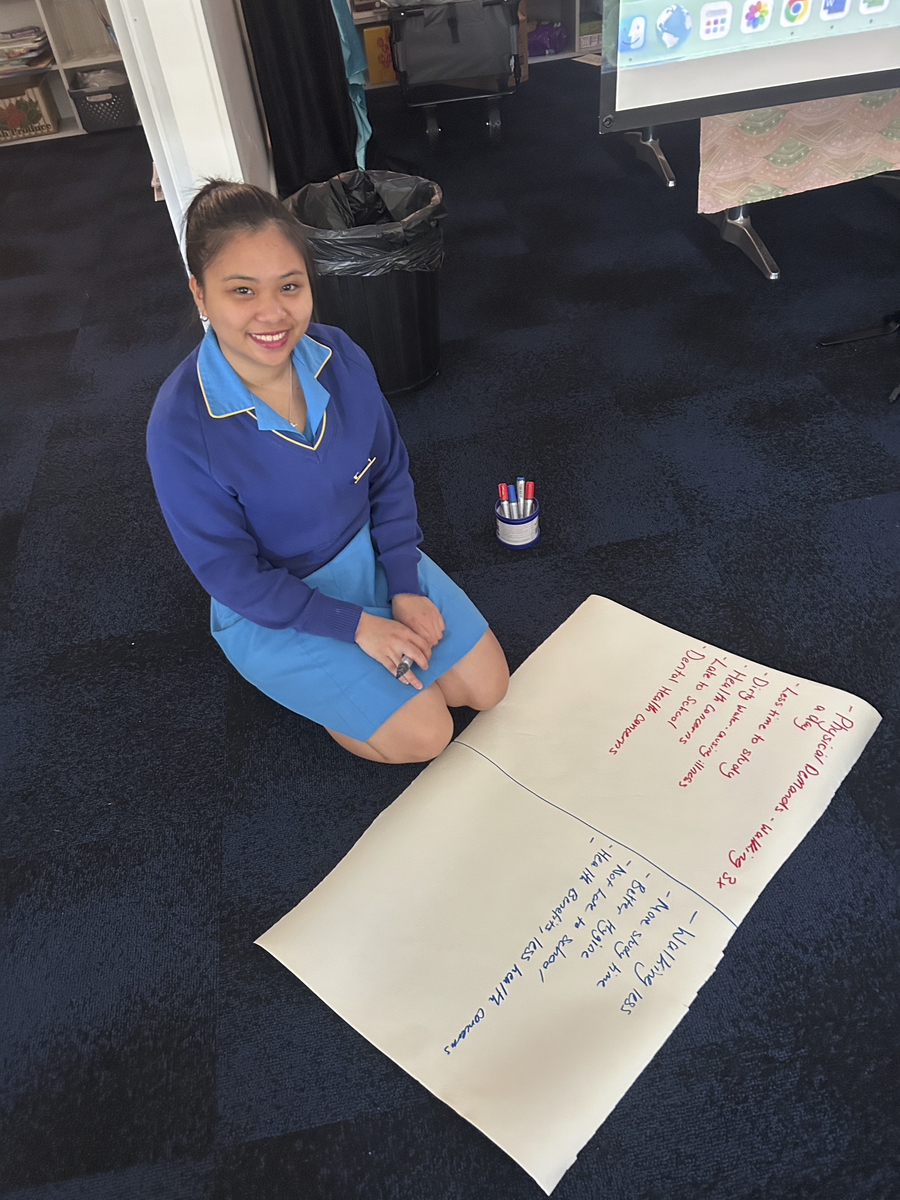 - Physical Demands - Walking 3x
a day
- Less time to study
- Dirty water - causing illness
- Health concerns
- Late to School
- Dental Health concerns
- Walking less
- More study time
- Better Hygine
- Not late to school
- Health Benefits, less health concerns
-